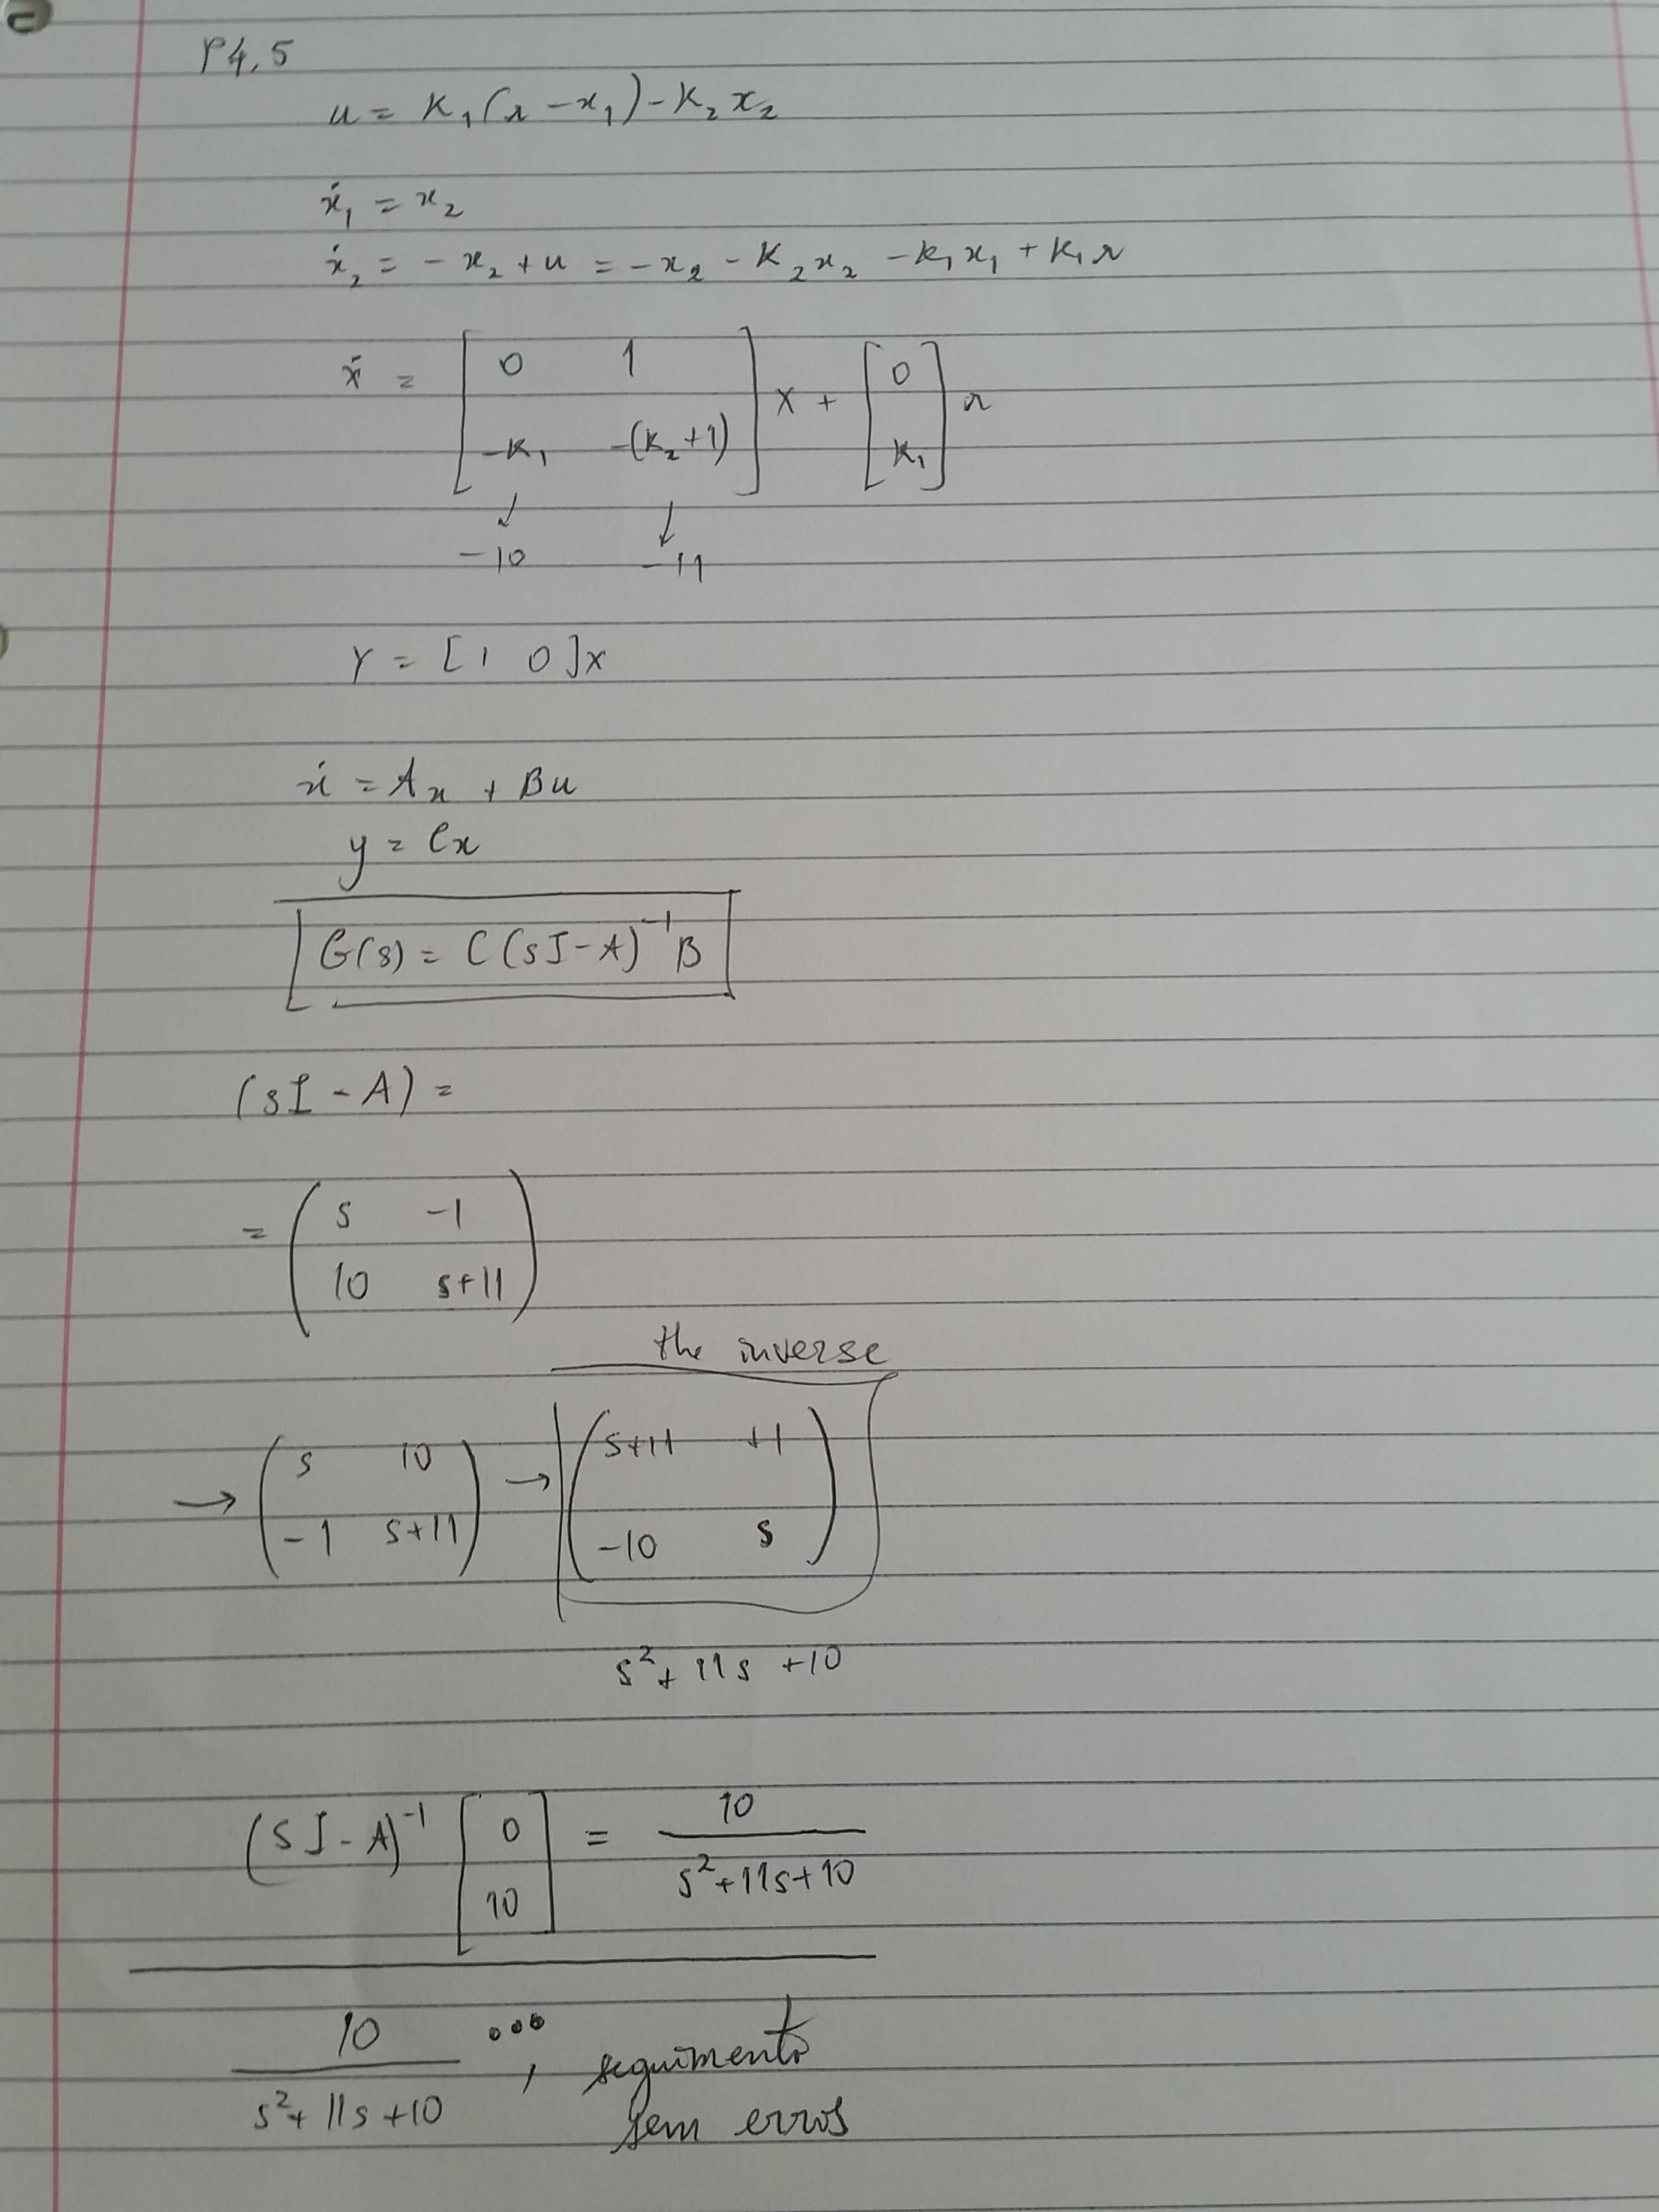 P4.5
u = K₁(r - x₁) - K₂ x₂
ẋ₁ = x₂
ẋ₂ = - x₂ + u = - x₂ - K₂x₂ - k₁x₁ + k₁r
ẋ = [ 0 1 ; -K₁ -(K₂+1) ] X + [ 0 ; K₁ ] r
↓ ↓
-10 -11
Y = [1 0]x
ẋ = Ax + Bu
y = Cx
G(s) = C(sI-A)⁻¹B
(sI - A) =
= ( s -1 ; 10 s+11 )
the inverse
→ ( s 10 ; -1 s+11 ) → ( s+11 +1 ; -10 s )
s² + 11s + 10
(SI - A)⁻¹ [ 0 ; 10 ] = 10 / (s²+11s+10)
10 / (s²+11s+10) ∘∘∘, seguimento
sem erros